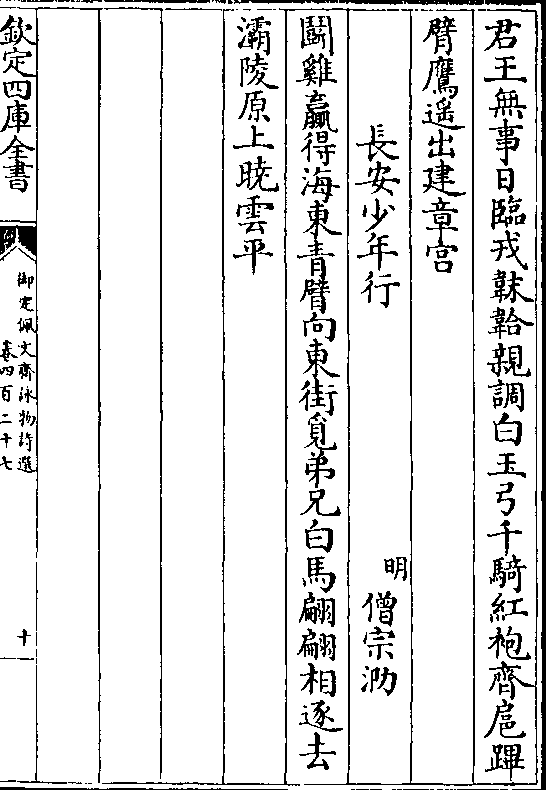 君王無事日臨戎韎韐親調白玉弓千騎紅袍齊扈蹕
臂鷹遥出建章宫
長安少年行
明 僧宗泐
鬬雞贏得海東青臂向東街覓弟兄白馬翩翩相逐去
灞陵原上曉雲平
欽定四庫全書
御定佩文齋詠物詩選
卷四百二十七
十